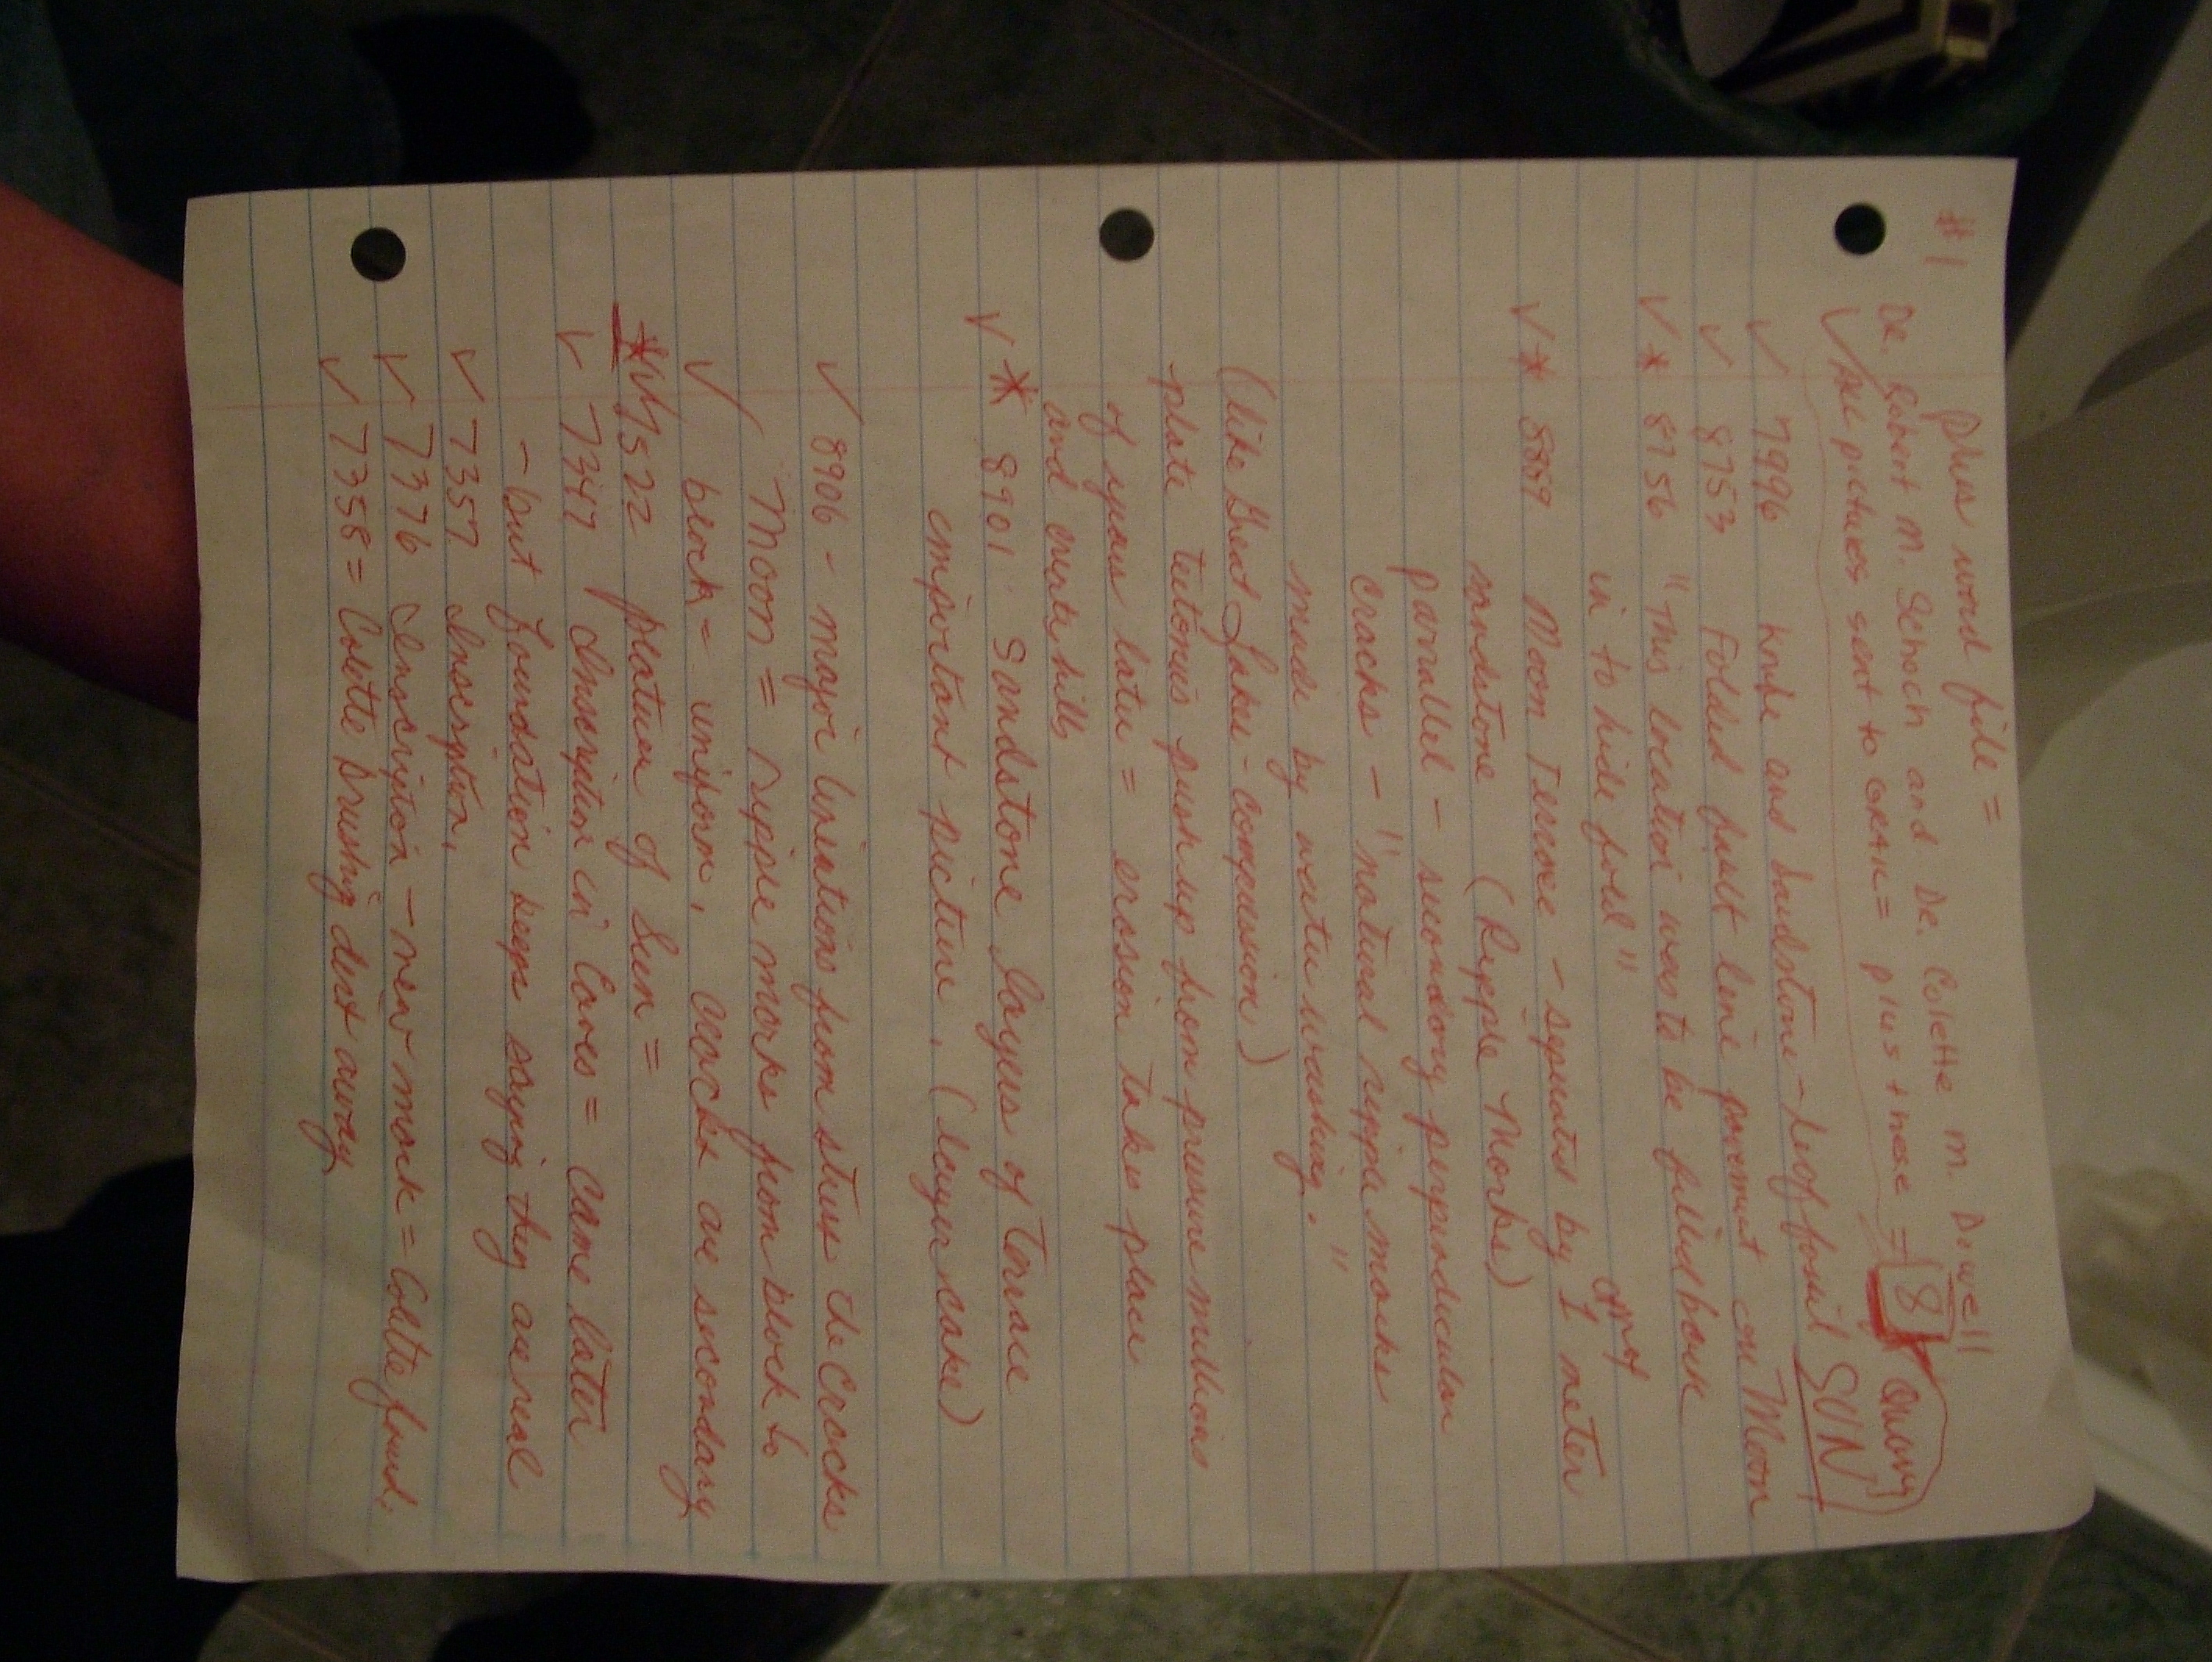 #1 Plus word file =
Dr. Robert M. Schoch and Dr. Colette M. Dowell
✓ All pictures sent to GRAH = plus these = 18 Quarry
✓ 7996 Knife and Sandstone - Leaf fossil SUN
✓ 8753 Folded fault line pavement on Moon
✓ * 8756 "This location was to be filled back
in to hide fosil"
✓ * 8859 Moon Terrace - separates by 1 meter
apart
sandstone (Ripple Marks)
parrallel - secondary perpendicular
cracks - "natural rippa marks
made by water washing."
(like Great Lakes - compression)
plate tectonics push up from pressure millions
of years later = erosion takes place
and exerts hills
✓ * 8901 Sandstone layers of Terrace
important picture. (layer cake)
✓ 8906 - major liniations from stress the cracks
Moon = ripple marks from block to
✓ block = uniform, cracks are secondary
*✓ 7522 plateu of Sun =
✓ 7347 Inscription in Caves = came later
- but foundation keeps saying they are real
✓ 7357 Inscription,
✓ 7376 Inscription - new mark = Colette found.
✓ 7358 = Colette brushing dirt away